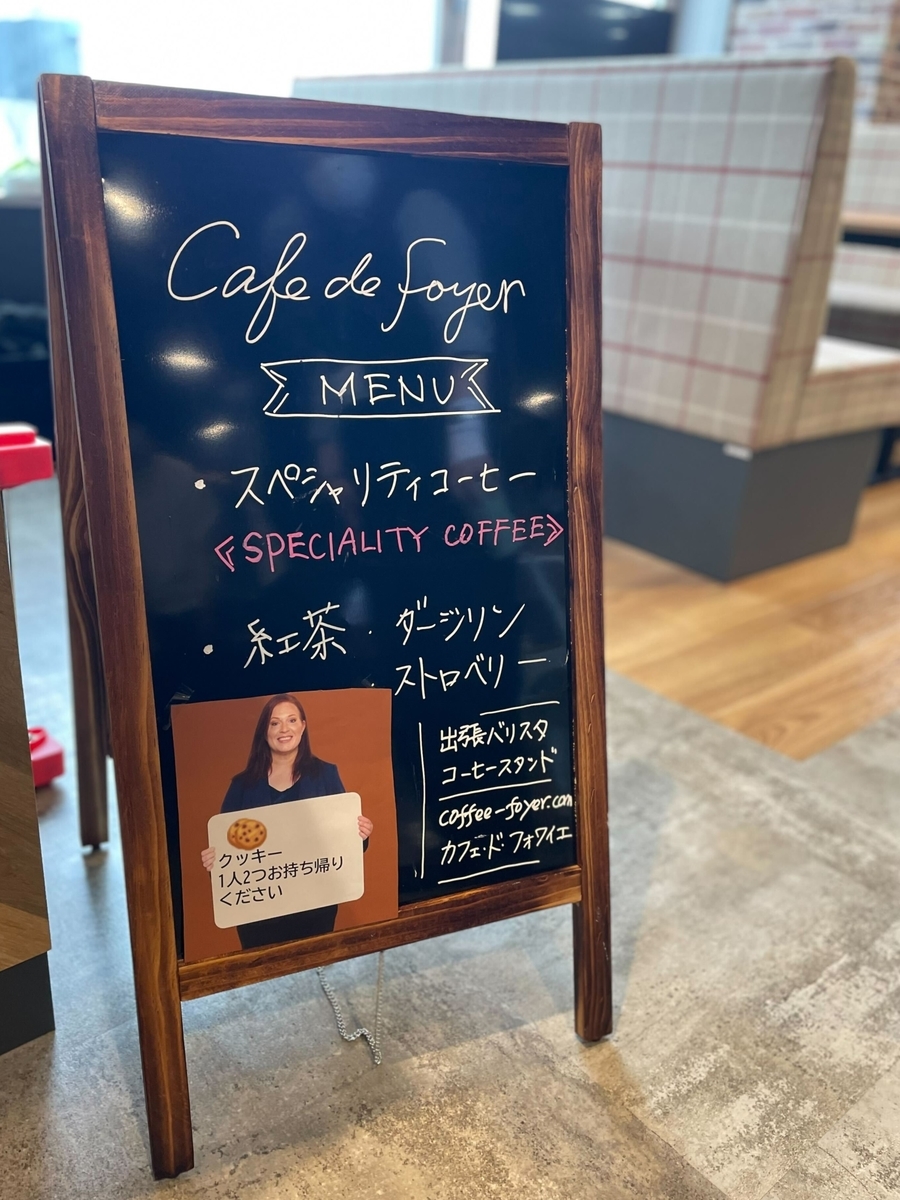 Cafe de foyer
MENU
・スペシャリティコーヒー
《SPECIALITY COFFEE》
・紅茶・ダージリン
・ストロベリー
出張バリスタ
コーヒースタンド
coffee-foyer.com
カフェ・ド・フォワイエ
クッキー
1人2つお持ち帰り
ください